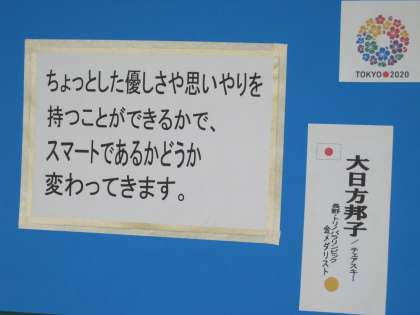 ちょっとした優しさや思いやりを
持つことができるかで、
スマートであるかどうか
変わってきます。
TOKYO 2020
大日方邦子/チェアスキー
長野・トリノパラリンピック
金メダリスト